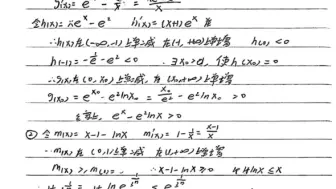 g'(x) = e^x - e²/x =
令h(x) = xe^x - e² h'(x) = (x+1)e^x 在
∴h(x)在(-∞,-1)上单减 在(-1,+∞)上单增 h(0)<0
h(-1) = -1/e - e² < 0 ∴∃x₀>0, 使h(x₀)=0
∴g(x)在(0,x₀)上单减, 在(x₀,+∞)上单增
g(x₀) = e^x₀ - e²lnx₀ = - e²lnx₀ > 0
综上, e^x - e²lnx > 0
② 令m(x) = x-1-lnx m'(x) = 1-1/x = (x-1)/x
∴m(x)在(0,1)上单减 在(1,+∞)上单增
m(x) ≥ m(1) = 0 ∴x-1-lnx ≥ 0 lnx ≤ x